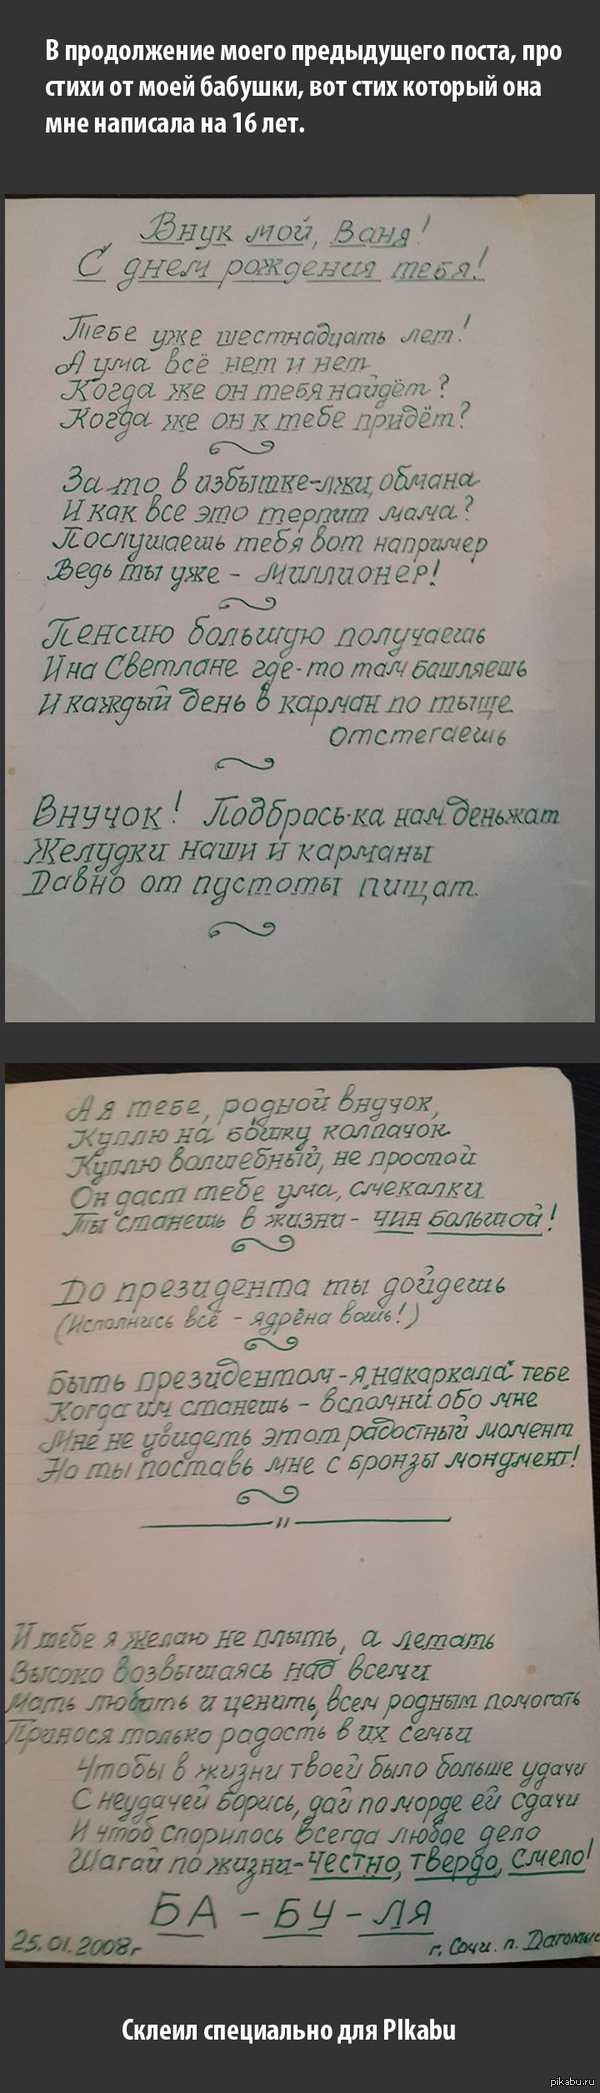 В продолжение моего предыдущего поста, про
стихи от моей бабушки, вот стих который она
мне написала на 16 лет.
Внук мой, Ваня!
С днем рождения тебя!
Тебе уже шестнадцать лет!
А ума всё нет и нет
Когда же он тебя найдёт?
Когда же он к тебе придёт?
За-то в избытке-лжи, обмана
И как все это терпит мама?
Послушаешь тебя вот например
Ведь ты уже - миллионер!
Пенсию большую получаешь
И на Светлане где-то там башляешь
И каждый день в карман по тыще
отстегаешь
Внучок! Подбрось-ка нам деньжат
Желудки наши и карманы
Давно от пустоты пищат.
А я тебе, родной внучок,
Куплю на бошку колпачок
Куплю волшебный, не простой
Он даст тебе ума, смекалки
Ты станешь в жизни - чин большой!
До президента ты дойдешь
(Исполнись всё - ядрёна вошь!)
Быть президентом - я "накаркала" тебе
Когда им станешь - вспомни обо мне
Мне не увидеть этот радостный момент
Но ты поставь мне с бронзы монумент!
И тебе я желаю не плыть, а летать
Высоко возвышаясь над всеми
Мать любить и ценить, всем родным помогать
Принося только радость в их семьи
Чтобы в жизни твоей было больше удачи
С неудачей борись, дай по морде ей сдачи
И чтоб спорилось всегда любое дело
Шагай по жизни-честно, твердо, смело!
БА - БУ - ЛЯ
25.01.2008г
г. Сочи. п. Дагомыс
Склеил специально для PIkabu
pikabu.ru